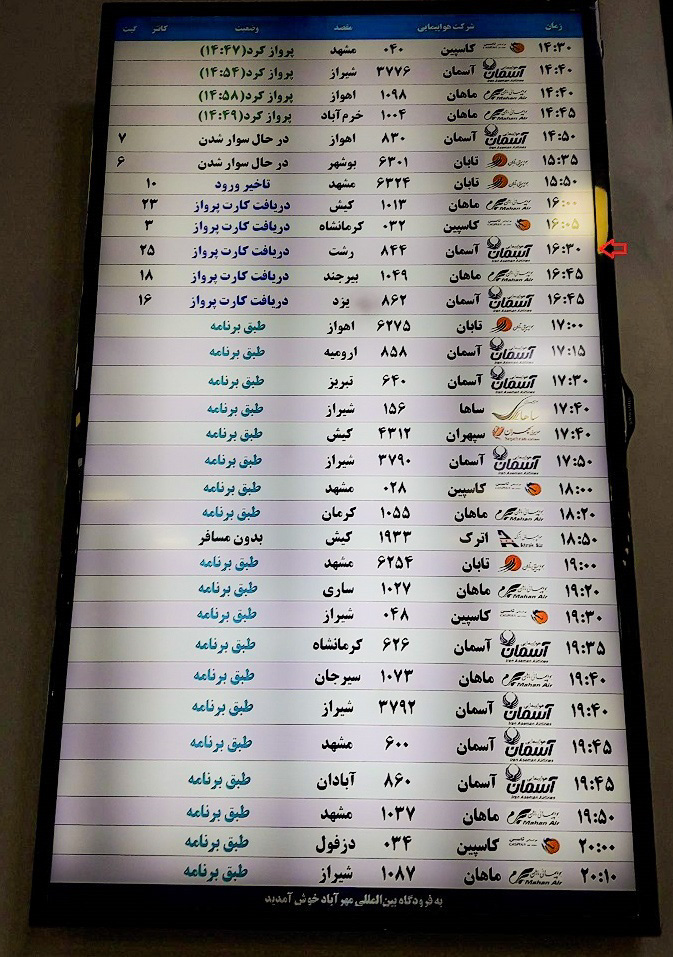 زمان شرکت هواپیمایی مقصد وضعیت کانتر گیت
۱۴:۳۰ کاسپین ۰۴۰ مشهد پرواز کرد(۱۴:۴۷)
۱۴:۴۰ آسمان ۳۷۷۶ شیراز پرواز کرد(۱۴:۵۴)
۱۴:۴۰ Mahan Air ماهان ۱۰۹۸ اهواز پرواز کرد(۱۴:۵۸)
۱۴:۴۵ Mahan Air ماهان ۱۰۰۴ خرم‌آباد پرواز کرد(۱۴:۴۹)
۱۴:۵۰ آسمان آسمان ۸۳۰ اهواز در حال سوار شدن ۷
۱۵:۳۵ تابان ۶۳۰۱ بوشهر در حال سوار شدن ۶
۱۵:۵۰ تابان ۶۳۲۴ مشهد تاخیر ورود ۱۰
۱۶:۰۰ Mahan Air ماهان ۱۰۱۳ کیش دریافت کارت پرواز ۲۳
۱۶:۰۵ کاسپین ۰۳۲ کرمانشاه دریافت کارت پرواز ۳
۱۶:۳۰ آسمان آسمان ۸۴۴ رشت دریافت کارت پرواز ۲۵
۱۶:۴۵ Mahan Air ماهان ۱۰۴۹ بیرجند دریافت کارت پرواز ۱۸
۱۶:۴۵ آسمان آسمان ۸۶۲ یزد دریافت کارت پرواز ۱۶
۱۷:۰۰ تابان ۶۲۷۵ اهواز طبق برنامه
۱۷:۱۵ آسمان آسمان ۸۵۸ ارومیه طبق برنامه
۱۷:۳۰ آسمان آسمان ۶۴۰ تبریز طبق برنامه
۱۷:۴۰ ساها ۱۵۶ شیراز طبق برنامه
۱۷:۴۰ سپهران ۴۳۱۲ کیش طبق برنامه
۱۷:۵۰ آسمان آسمان ۳۷۹۰ شیراز طبق برنامه
۱۸:۰۰ کاسپین ۰۲۸ مشهد طبق برنامه
۱۸:۲۰ Mahan Air ماهان ۱۰۵۵ کرمان طبق برنامه
۱۸:۵۰ اترک ۱۹۳۳ کیش بدون مسافر
۱۹:۰۰ تابان ۶۲۵۴ مشهد طبق برنامه
۱۹:۲۰ Mahan Air ماهان ۱۰۲۷ ساری طبق برنامه
۱۹:۳۰ کاسپین ۰۴۸ شیراز طبق برنامه
۱۹:۳۵ آسمان Iran Aseman Airlines آسمان ۶۲۶ کرمانشاه طبق برنامه
۱۹:۴۰ Mahan Air ماهان ۱۰۷۳ سیرجان طبق برنامه
۱۹:۴۰ آسمان Iran Aseman Airlines آسمان ۳۷۹۲ شیراز طبق برنامه
۱۹:۴۵ آسمان Iran Aseman Airlines آسمان ۶۰۰ مشهد طبق برنامه
۱۹:۴۵ آسمان Iran Aseman Airlines آسمان ۸۶۰ آبادان طبق برنامه
۱۹:۵۰ Mahan Air ماهان ۱۰۳۷ مشهد طبق برنامه
۲۰:۰۰ CASPIAN کاسپین ۰۳۴ دزفول طبق برنامه
۲۰:۱۰ Mahan Air ماهان ۱۰۸۷ شیراز طبق برنامه
به فرودگاه بین‌المللی مهرآباد خوش آمدید